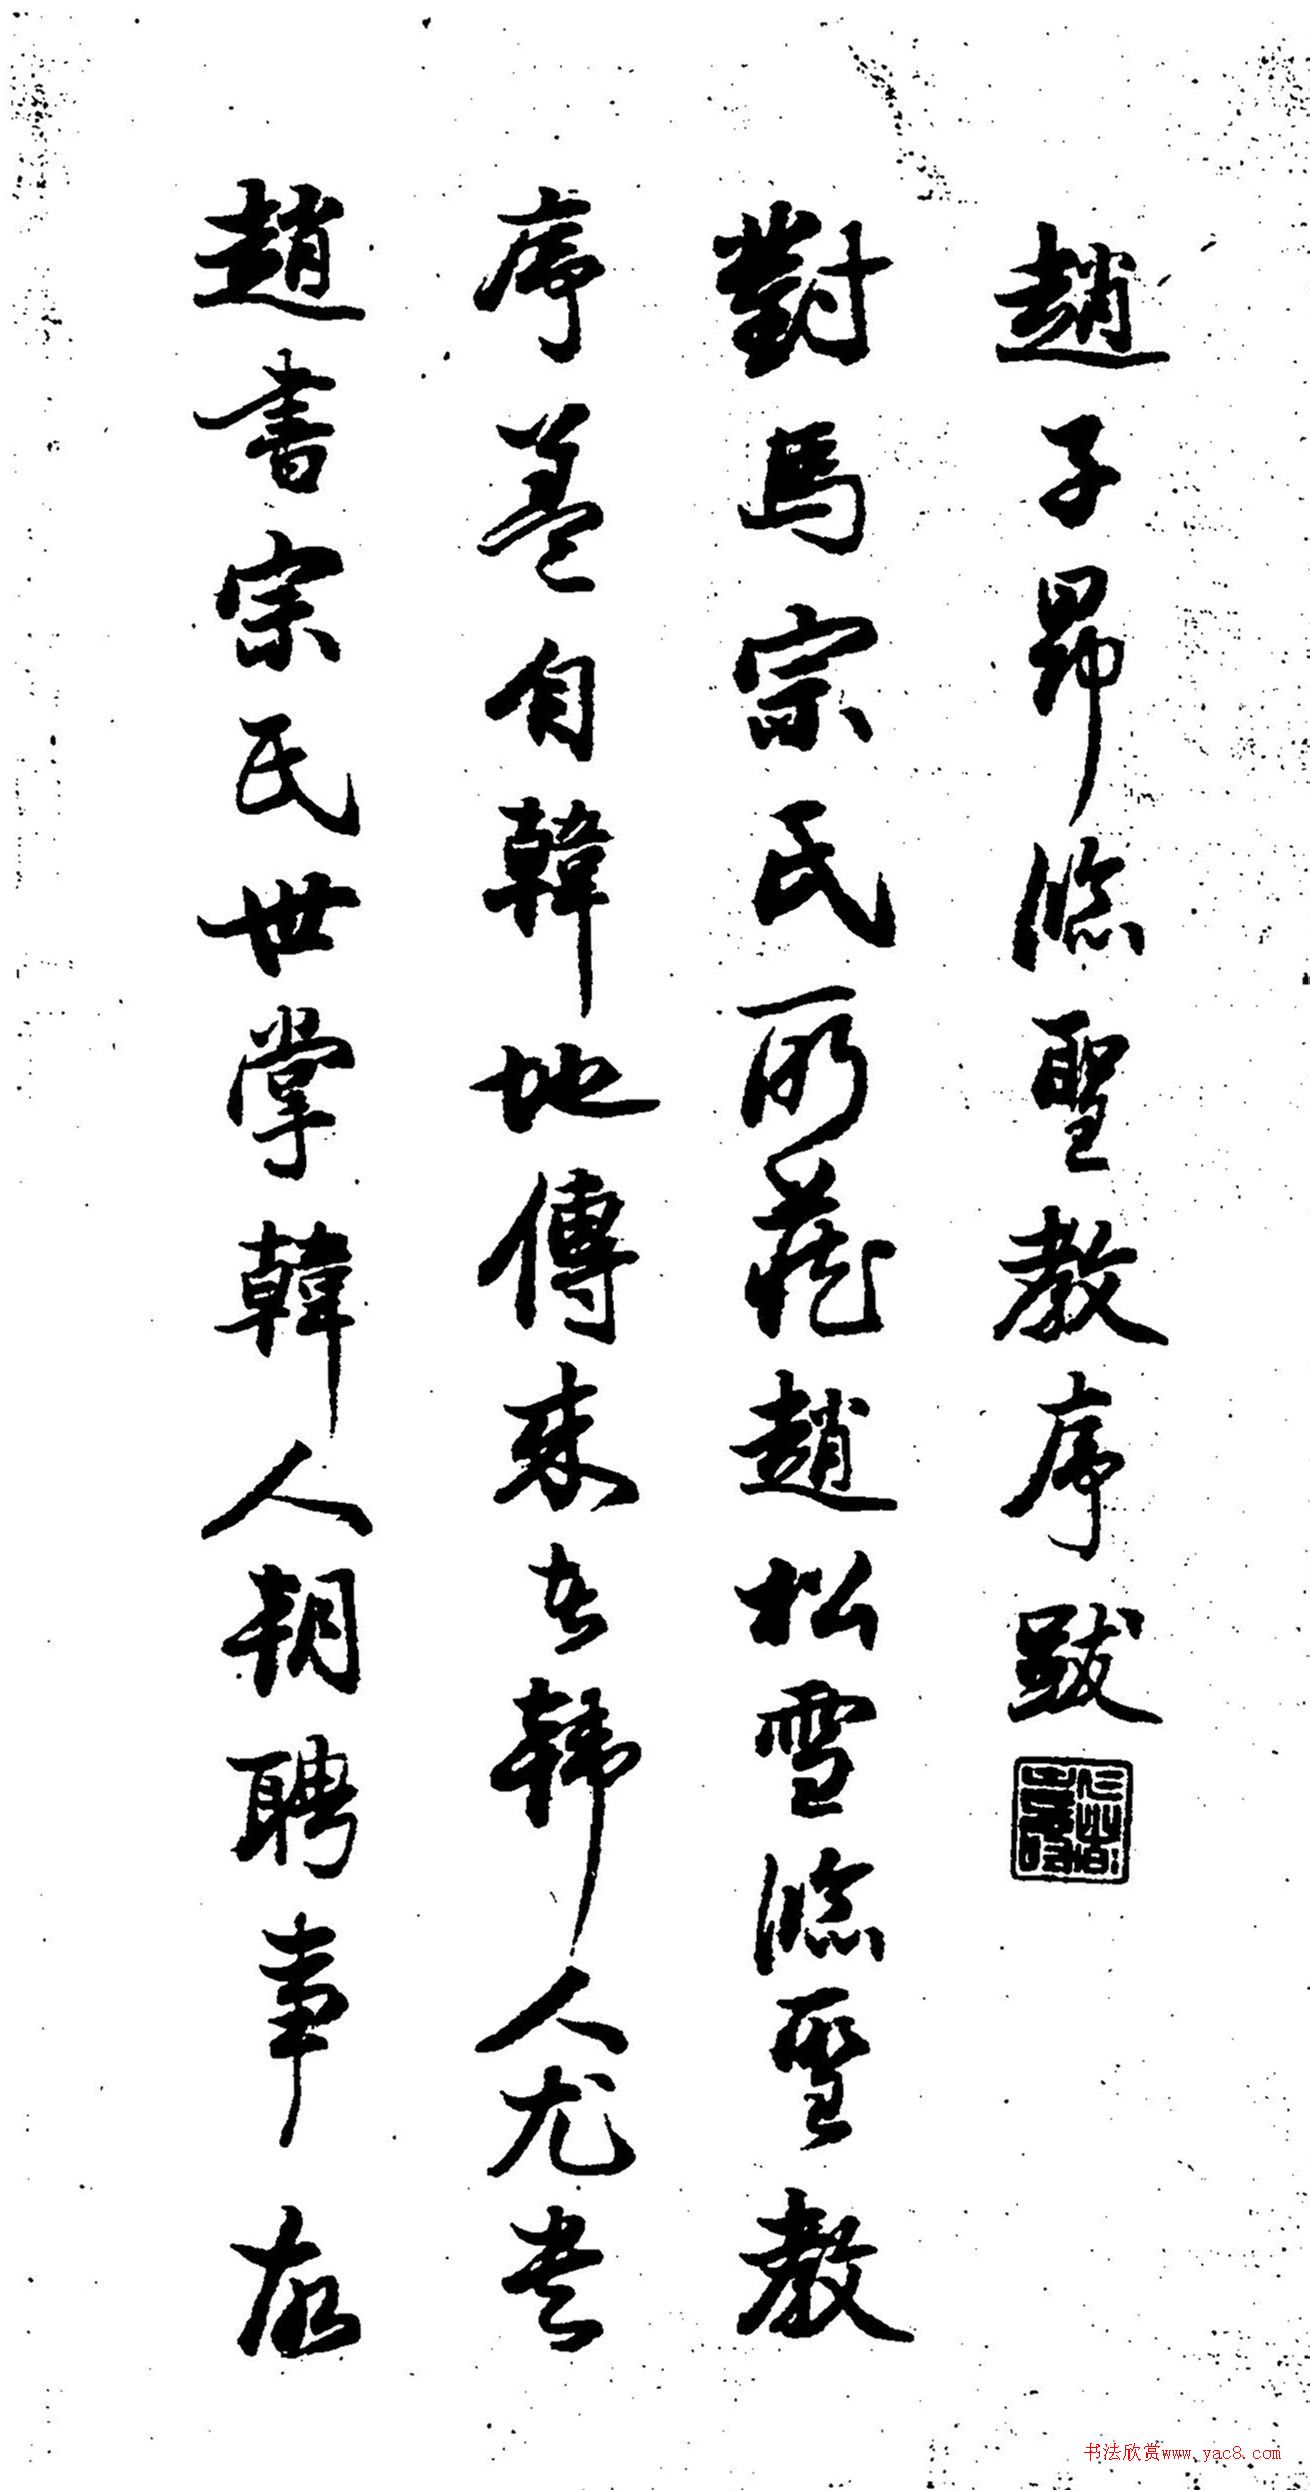 趙子昂臨聖教序跋
對馬宗氏所藏趙松雪臨聖教
序蓋自韓地傳來者韓人尤貴
趙書宗氏世掌韓人朝聘事故
书法欣赏www.yac8.com